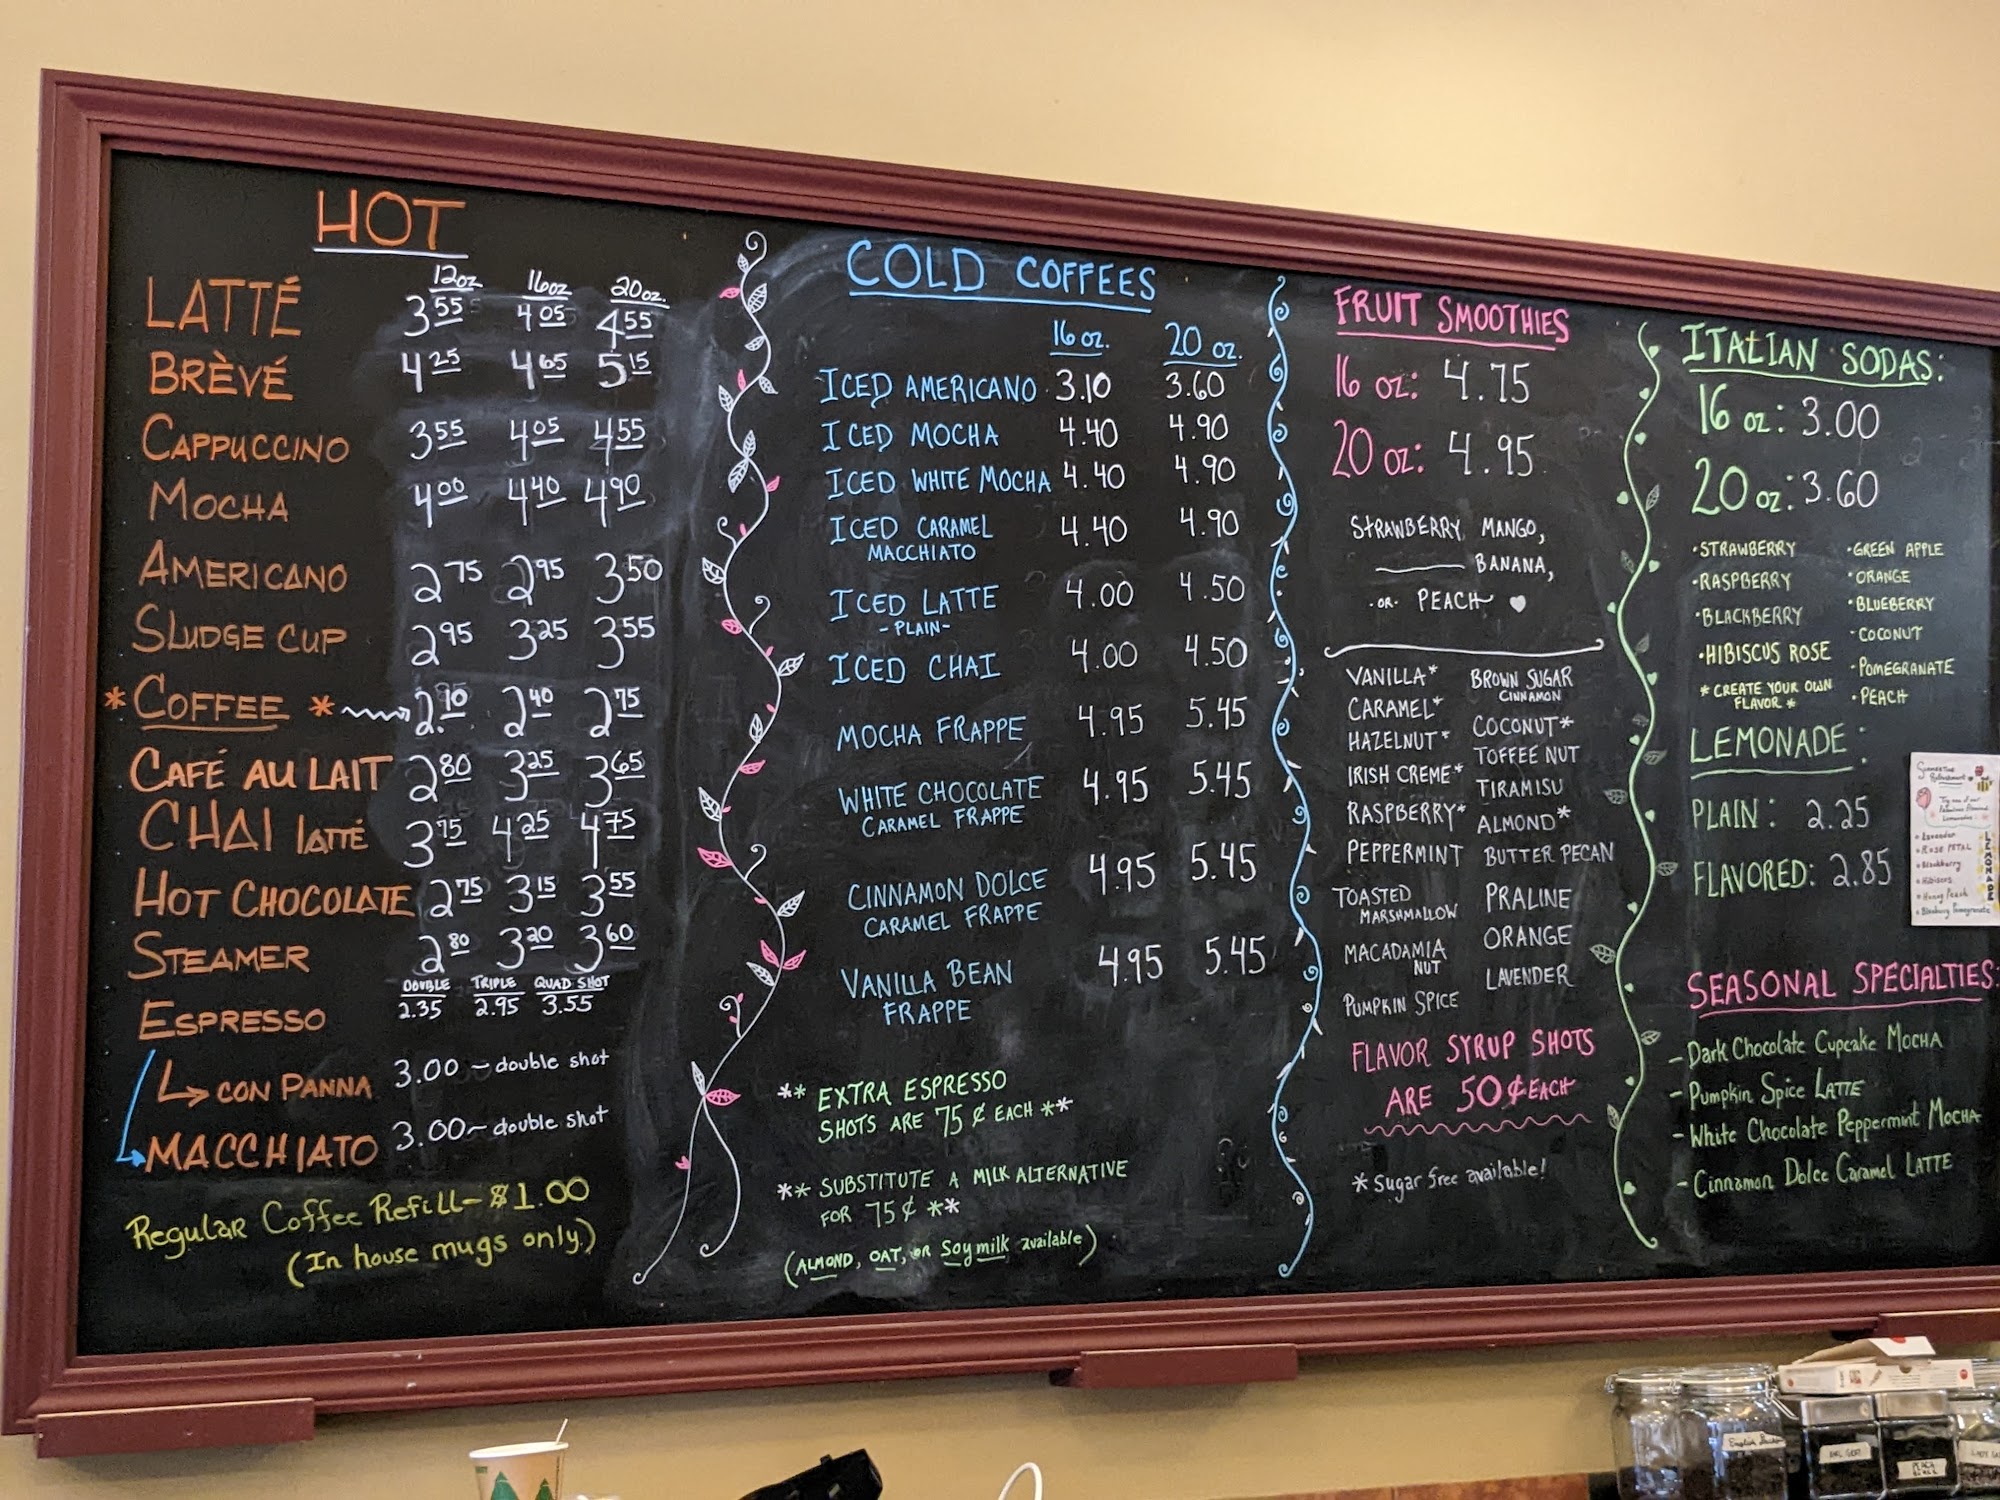 HOT
12oz 16oz 20oz.
LATTÉ 3.55 4.05 4.55
BRÈVÉ 4.25 4.65 5.15
CAPPUCCINO 3.55 4.05 4.55
MOCHA 4.00 4.40 4.90
AMERICANO 2.75 2.95 3.50
SLUDGE CUP 2.95 3.25 3.55
* COFFEE * 2.10 2.40 2.75
CAFÉ AU LAIT 2.80 3.25 3.65
CHAI LATTÉ 3.75 4.25 4.75
HOT CHOCOLATE 2.75 3.15 3.55
STEAMER 2.80 3.20 3.60
DOUBLE TRIPLE QUAD SHOT
ESPRESSO 2.35 2.95 3.55
CON PANNA 3.00 - double shot
MACCHIATO 3.00 - double shot
Regular Coffee Refill - $1.00
(In house mugs only.)
COLD COFFEES
16 oz. 20 oz.
ICED AMERICANO 3.10 3.60
ICED MOCHA 4.40 4.90
ICED WHITE MOCHA 4.40 4.90
ICED CARAMEL 4.40 4.90
MACCHIATO
ICED LATTE 4.00 4.50
-PLAIN-
ICED CHAI 4.00 4.50
MOCHA FRAPPE 4.95 5.45
WHITE CHOCOLATE 4.95 5.45
CARAMEL FRAPPE
CINNAMON DOLCE 4.95 5.45
CARAMEL FRAPPE
VANILLA BEAN 4.95 5.45
FRAPPE
** EXTRA ESPRESSO
SHOTS ARE 75¢ EACH **
** SUBSTITUTE A MILK ALTERNATIVE
FOR 75¢ **
(ALMOND, OAT, OR Soy milk available)
FRUIT SMOOTHIES
16 oz: 4.75
20 oz: 4.95
STRAWBERRY, MANGO,
BANANA,
-OR- PEACH
VANILLA* BROWN SUGAR
CINNAMON
CARAMEL* COCONUT*
HAZELNUT* TOFFEE NUT
IRISH CREME* TIRAMISU
RASPBERRY* ALMOND*
PEPPERMINT BUTTER PECAN
TOASTED PRALINE
MARSHMALLOW
MACADAMIA ORANGE
NUT
PUMPKIN SPICE LAVENDER
FLAVOR SYRUP SHOTS
ARE 50¢ EACH
* Sugar free available!
ITALIAN SODAS:
16 oz: 3.00
20 oz: 3.60
•STRAWBERRY •GREEN APPLE
•RASPBERRY •ORANGE
•BLACKBERRY •BLUEBERRY
•HIBISCUS ROSE •COCONUT
* CREATE YOUR OWN •POMEGRANATE
FLAVOR * •PEACH
LEMONADE:
PLAIN: 2.25
FLAVORED: 2.85
SEASONAL SPECIALTIES:
- Dark Chocolate Cupcake MOCHA
- Pumpkin Spice LATTE
- White Chocolate Peppermint MOCHA
- Cinnamon Dolce Caramel LATTE
Lavender
ROSE PETAL
Blackberry
Hibiscus
Honey Peach
LEMONADE
EARL GREY